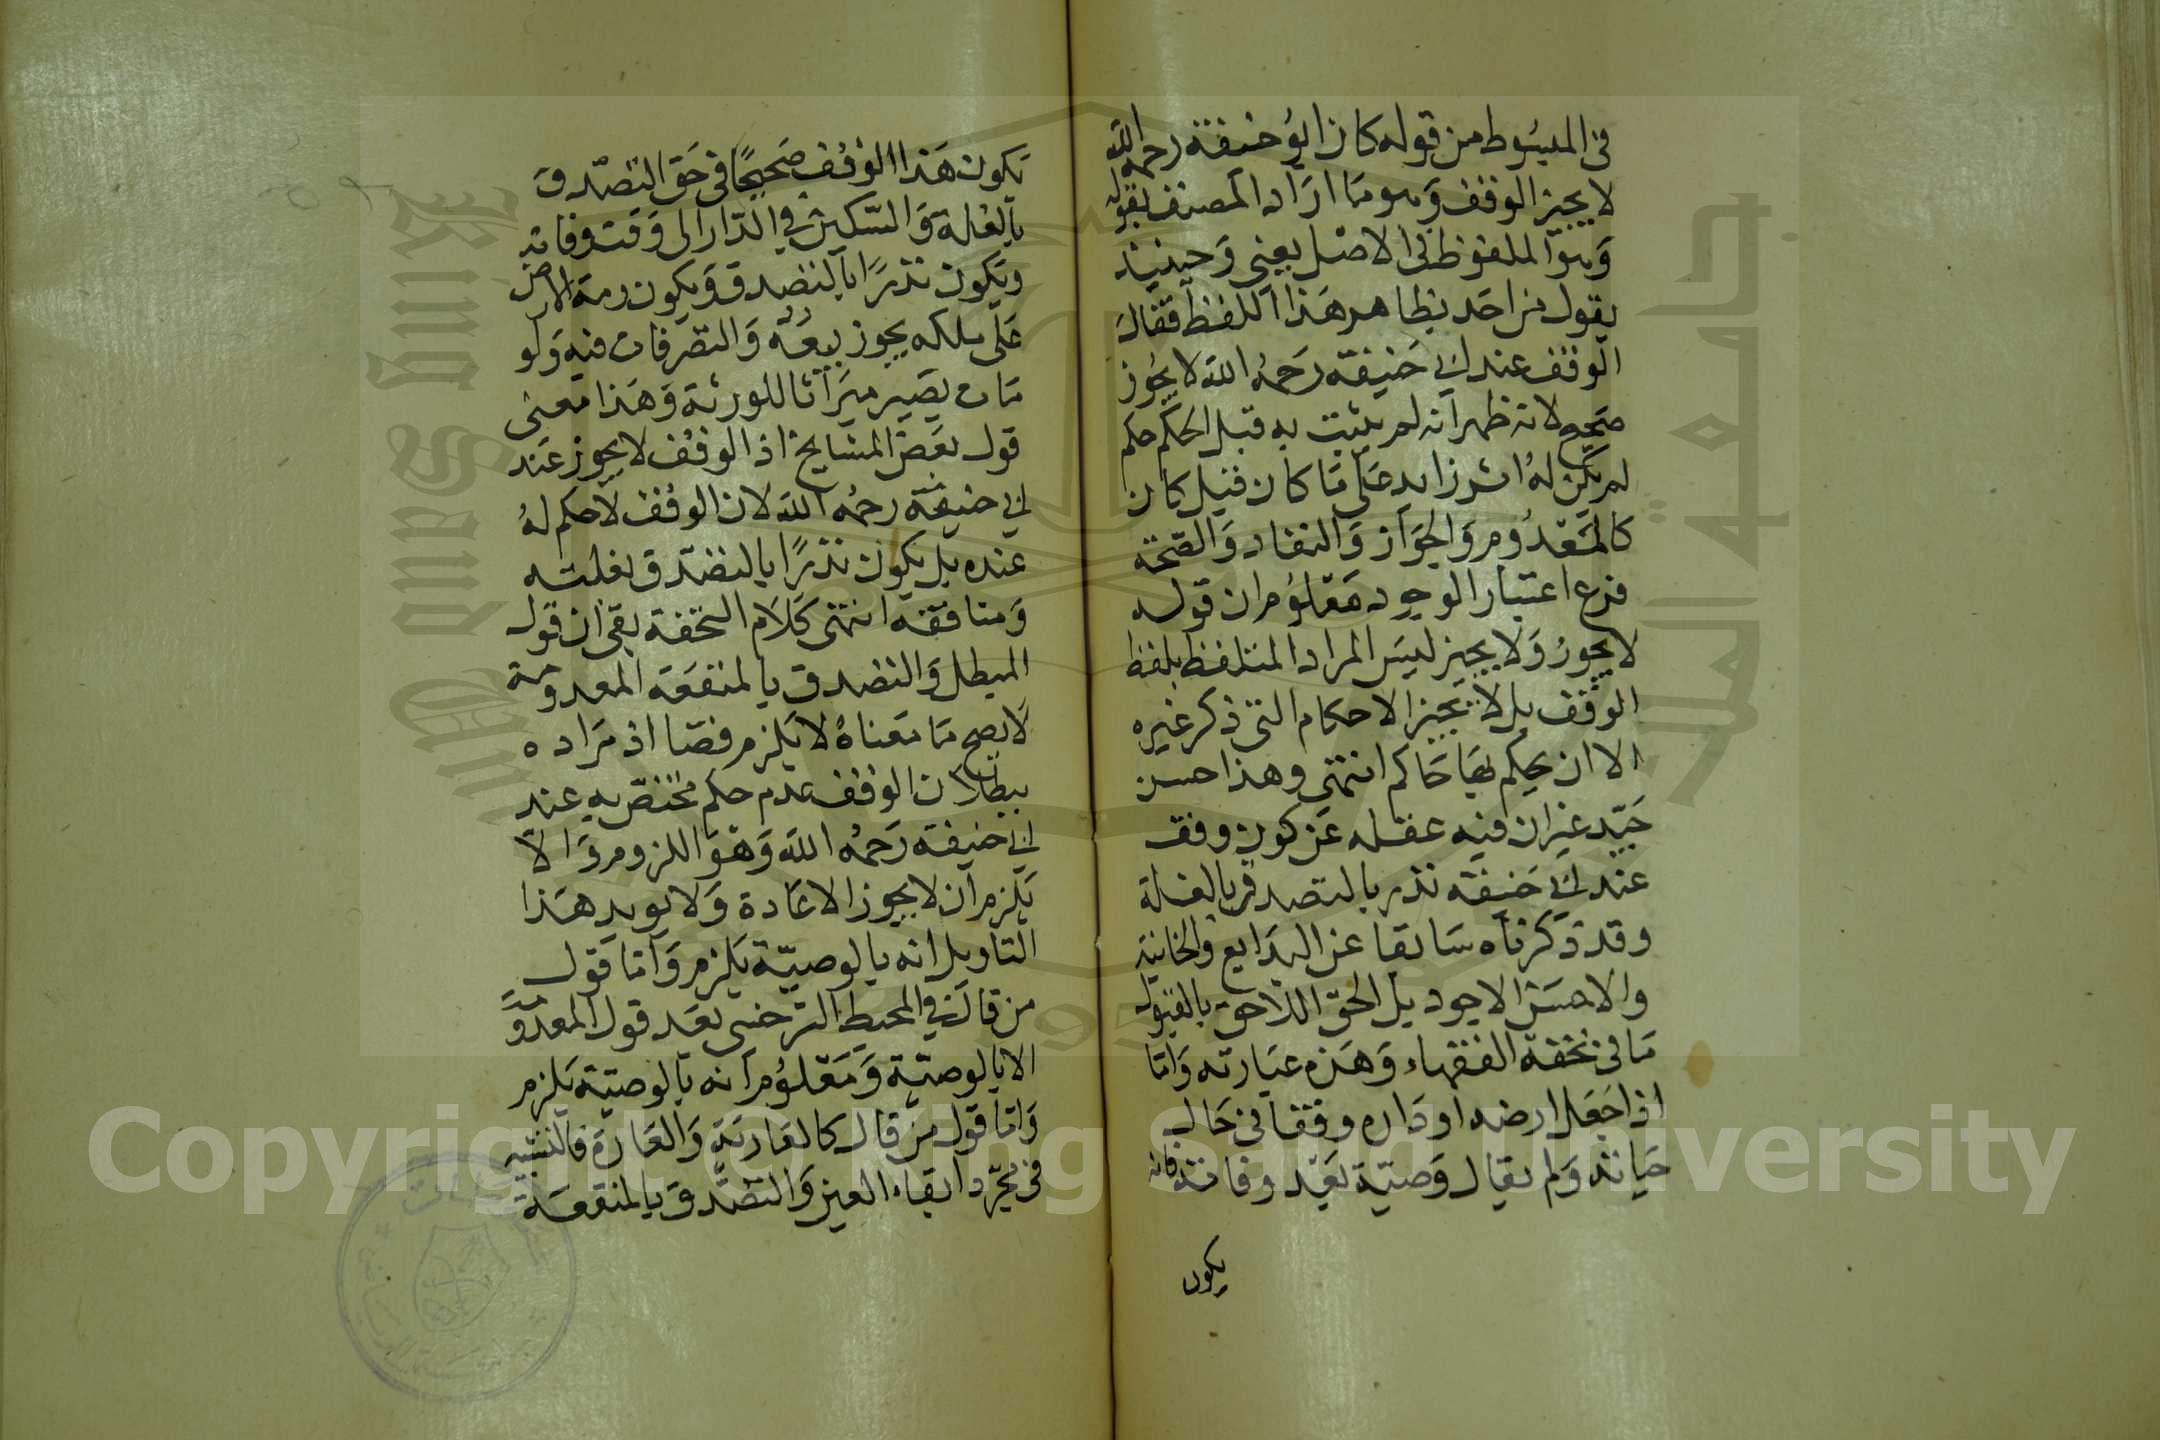 في المبسوط من قوله كان ابو حنيفة رحمه الله
لا يجيز الوقف وهو ما اراد المصنف بقوله
وهو الملفوظ في الاصل يعني وحينئذ
يقول من احد بظاهر هذا اللفظ فقال
الوقف عند ابي حنيفة رحمه الله لا يجوز
صحيح لانه ظهر انه لم يثبت به قبل الحكم حكم
لم يكن له اثر زايد على ما كان قبل كان
كالمعدوم والجواز والنفاد والصحة
فرع اعتبار الوجود معلوم ان قوله
لا يجوز ولا يجيز ليس المراد المتلفظ بلفظ
الوقف بل لا يجيز الاحكام التي ذكر غيره
الا ان يحكم بها حاكم انتهى وهذا حسن
جيد غير ان فيه غفله عن كون وقف
عند ابي حنيفة نذر بالتصدق بالغلة
وقد ذكرناه سابقا عن البدايع والخانية
والاحسن الاجود بل الحق اللاحق بالقبول
ما في تحفة الفقهاء وهذه عبارته واما
اذا جعل ارضه او داره وقفا في حال
حياته ولم يقال وصية بعد وفاته فانه
يكون
يكون هذا الوقف صحيحا في حق التصدق
بالغلة والسكنى في الدار الى وقت وفاته
ويكون نذرا بالتصدق ويكون رمة الارض
على ملكه يجوز بيعه والتصرفات فيه ولو
مات يصير ميراثا للورثة وهذا معنى
قول بعض المشايخ اذ الوقف لا يجوز عند
ابي حنيفة رحمه الله لان الوقف لا حكم له
عنده بل يكون نذرا بالتصدق بغلته
ومنافقه انتهى كلام التحفة بقي ان قول
المبطل والتصدق بالمنفعة المعدومة
لا يصح ما معناه لا يلزم قضا اذ مراده
ببطلان الوقف عدم حكم مختص به عند
ابي حنيفة رحمه الله وهو اللزوم والا
يلزم ان لا يجوز الاعادة ولا يويد هذا
التاويل انه بالوصية يلزم واما قول
من قال في المحيط السرخسي بعد قول المعدو
الا بالوصية ومعلوم انه بالوصية يلزم
واما قول من قال كالعارية والعارة فالتشبيه
في مجرد ابقاء العين والتصدق بالمنفعة
Copyright © King Saud University
King Saud University
جامعة الملك سعود